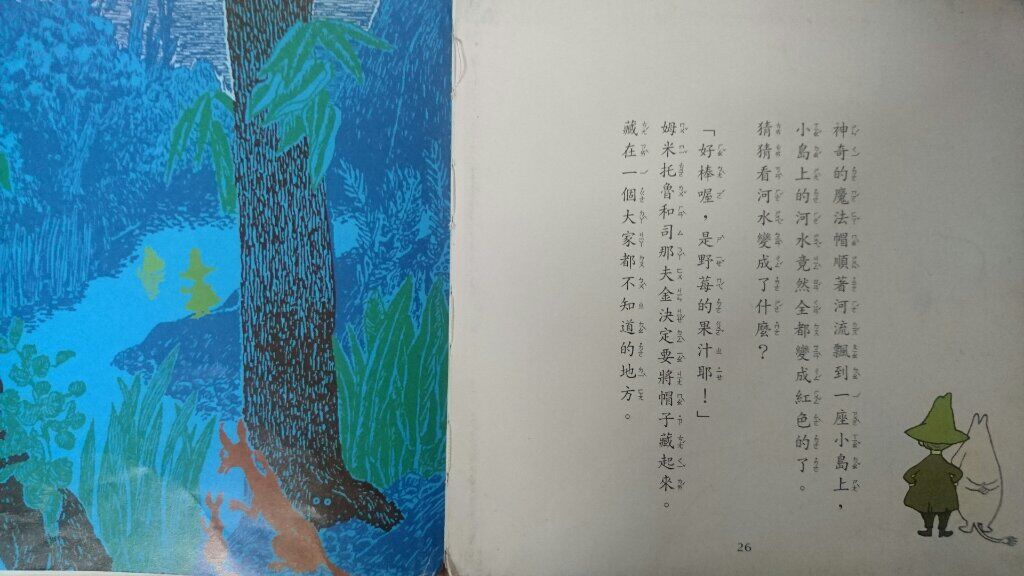 神奇的魔法帽順著河流飄到一座小島上，
小島上的河水竟然全都變成紅色的了。
猜猜看河水變成了什麼？
「好棒喔，是野莓的果汁耶！」
姆米托魯和司那夫金決定要將帽子藏起來。
藏在一個大家都不知道的地方。
26